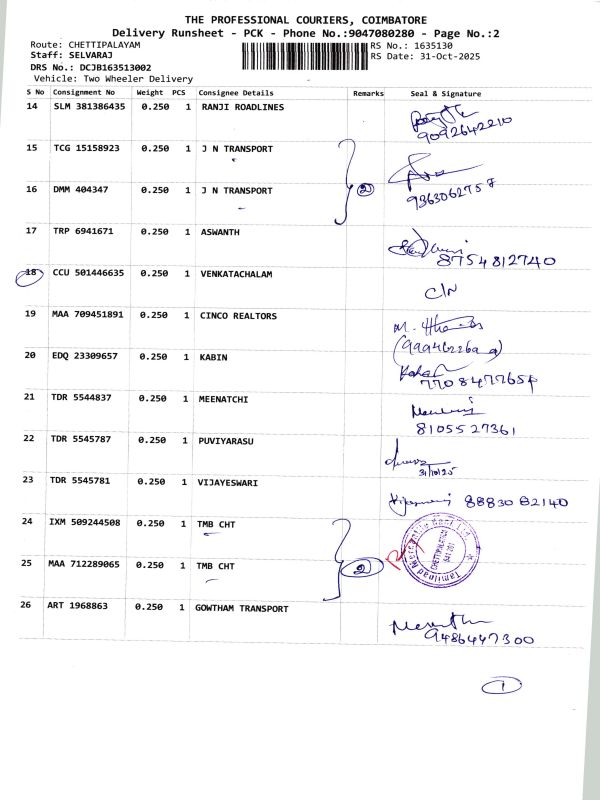 THE PROFESSIONAL COURIERS, COIMBATORE
Delivery Runsheet - PCK - Phone No.:9047080280 - Page No.:2
Route: CHETTIPALAYAM RS No.: 1635130
Staff: SELVARAJ RS Date: 31-Oct-2025
DRS No.: DCJB163513002
Vehicle: Two Wheeler Delivery
S No Consignment No Weight PCS Consignee Details Remarks Seal & Signature
14 SLM 381386435 0.250 1 RANJI ROADLINES
9092642210
15 TCG 15158923 0.250 1 J N TRANSPORT
2
16 DMM 404347 0.250 1 J N TRANSPORT
9363062757
17 TRP 6941671 0.250 1 ASWANTH
8754812740
18 CCU 501446635 0.250 1 VENKATACHALAM
C/N
19 MAA 709451891 0.250 1 CINCO REALTORS
20 EDQ 23309657 0.250 1 KABIN
21 TDR 5544837 0.250 1 MEENATCHI
8105527361
22 TDR 5545787 0.250 1 PUVIYARASU
31/10/25
23 TDR 5545781 0.250 1 VIJAYESWARI
88830 82140
24 IXM 509244508 0.250 1 TMB CHT
Tamilnad Mercantile Bank Ltd
CHETTIPALAYAM
2
25 MAA 712289065 0.250 1 TMB CHT
26 ART 1968863 0.250 1 GOWTHAM TRANSPORT
9486447300
1